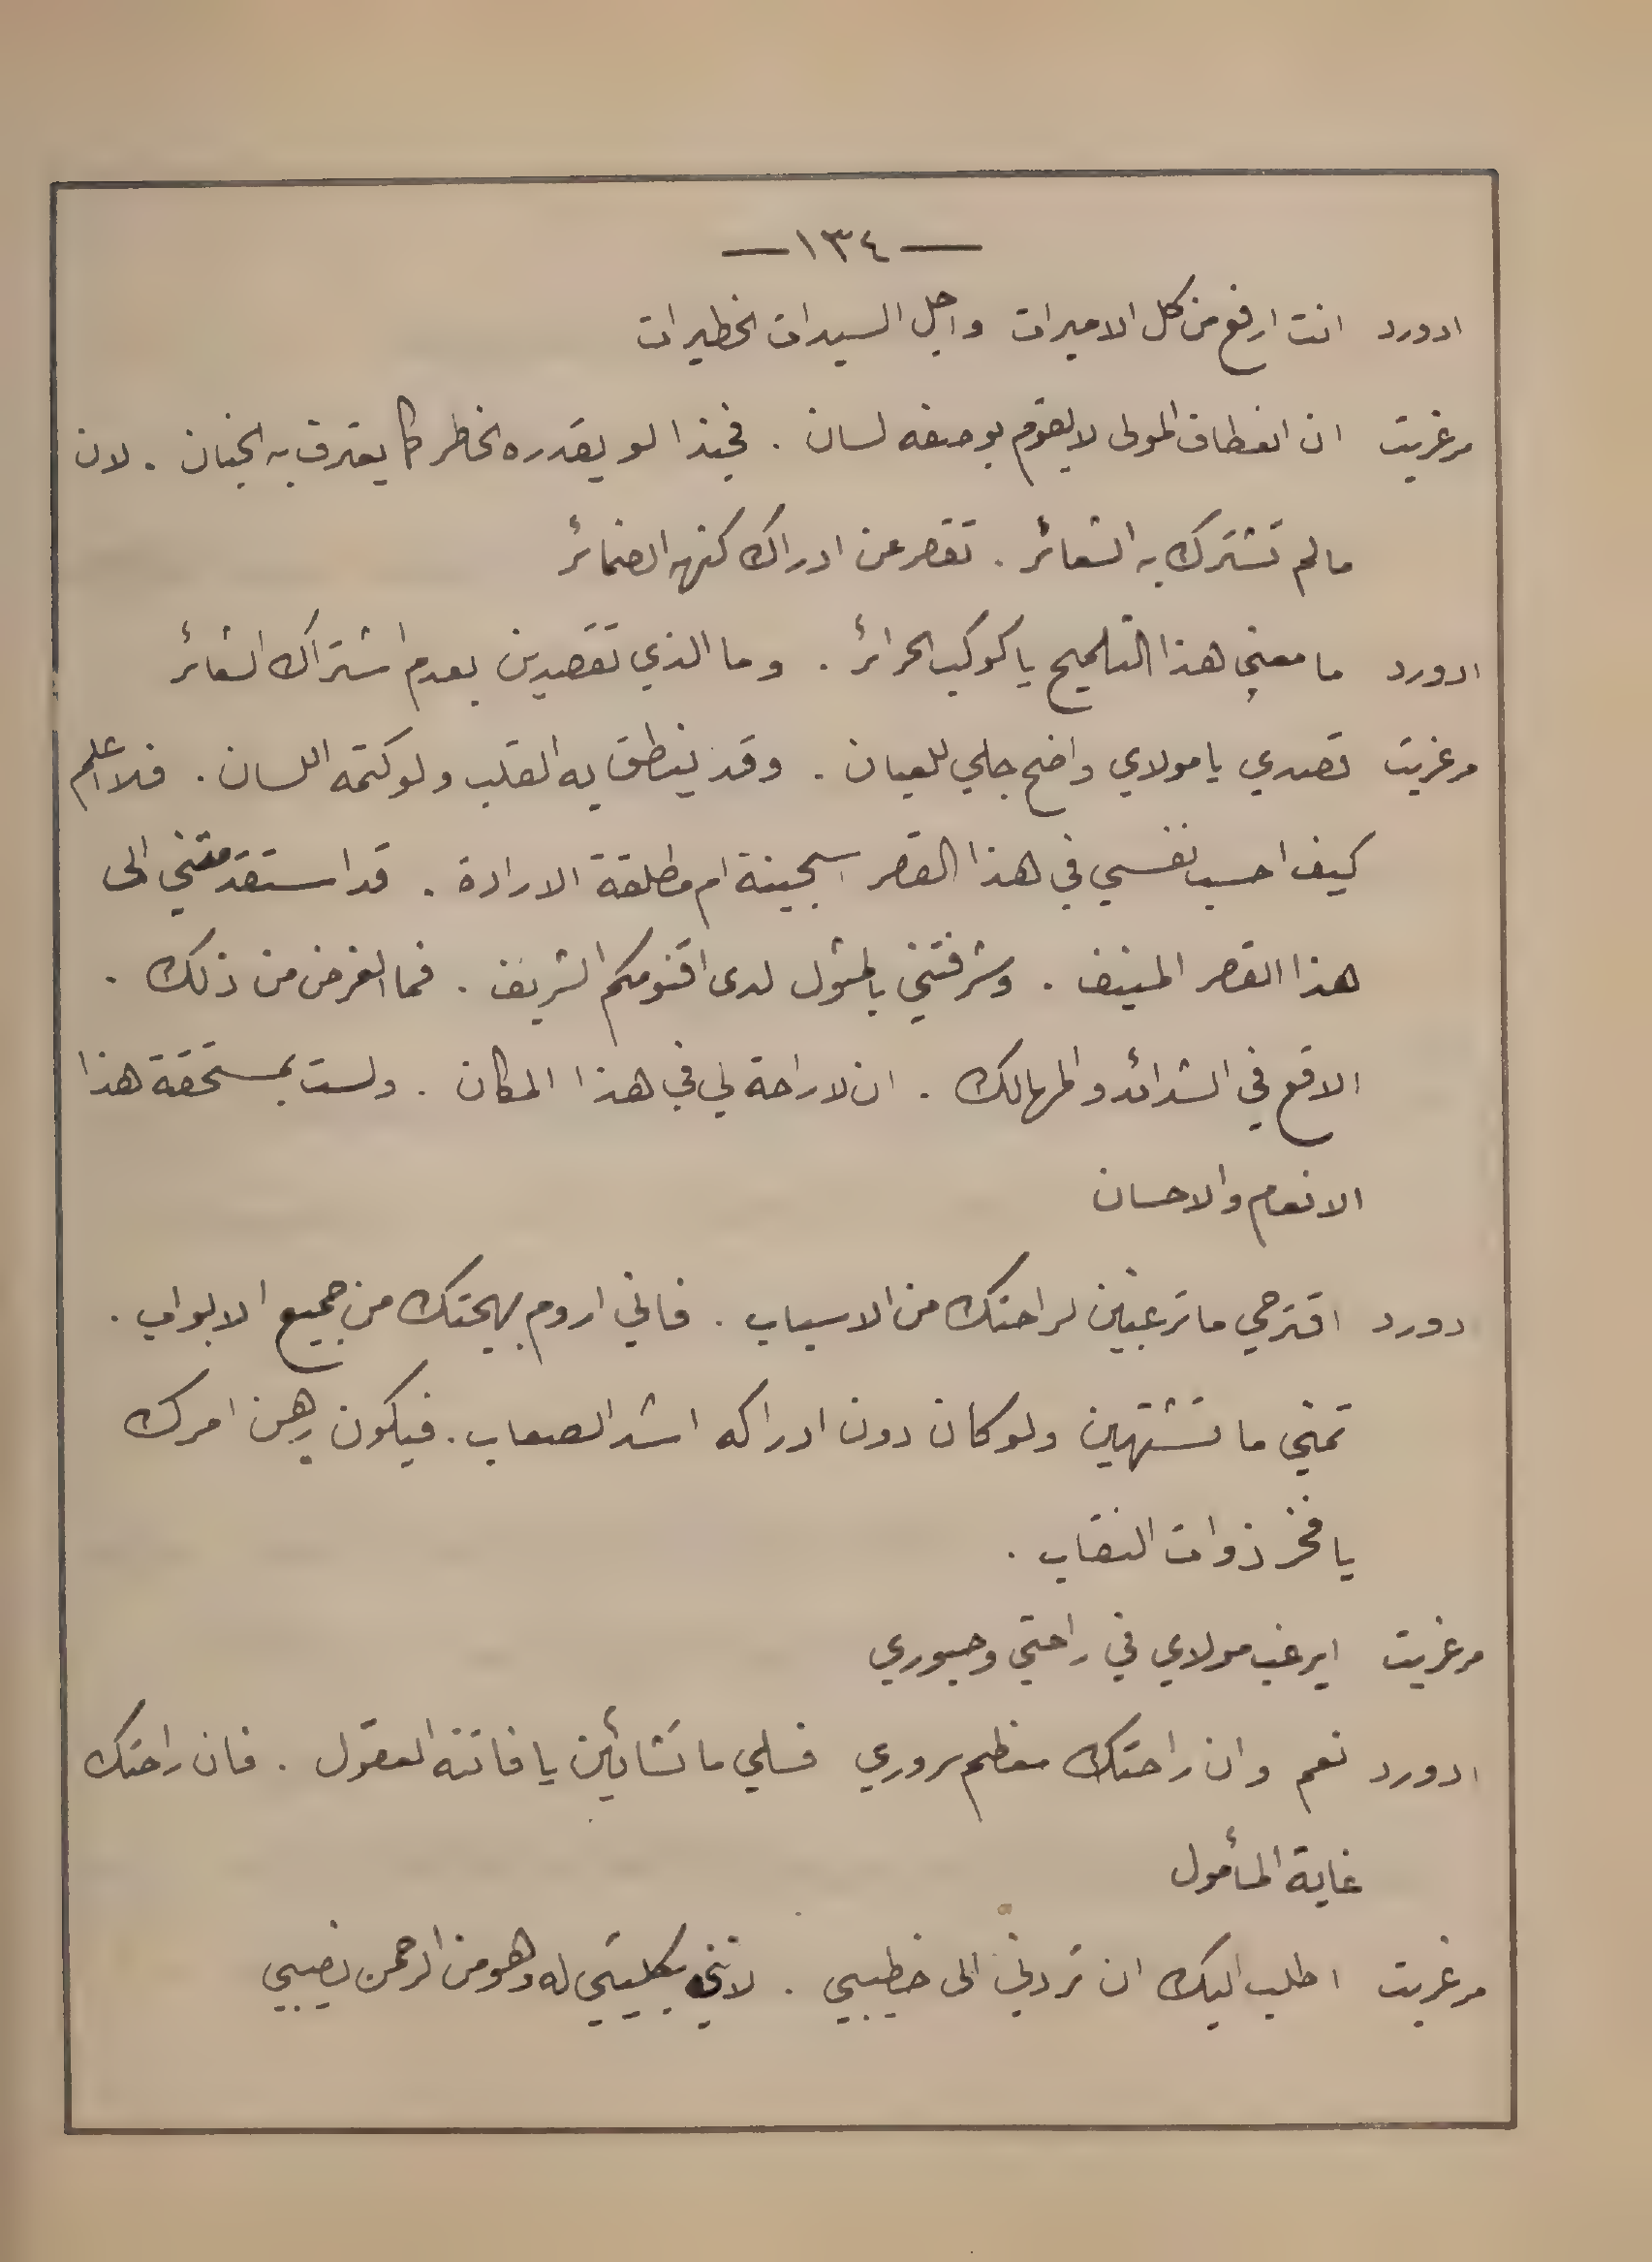 — ١٣٤ —
ادورد انت ارفع من كل الاميرات واجل السيدات الخطيرات
مرغريت ان انعطاف المولى لا يقوم بوصفه لسان . فحبذا لو يقدره الخاطر كما يعترف به الجنان . لان
ما لم تشترك به الشعائر . تقصر عن ادراك كنهه الضمائر
ادورد ما معنى هذا التلميح يا كوكب الحرائر . وما الذي تقصدين بعدم اشتراك الشعائر
مرغريت قصدي يا مولاي واضح جلي للعيان . وقد ينطق به القلب ولو كتمه اللسان . فلا اعلم
كيف احسب نفسي في هذا القصر اسجينة ام مطلقة الارادة . قد استقدمتني الى
هذا القصر المنيف . وشرفتني بالمثول لدى اقنومكم الشريف . فما الغرض من ذلك .
الاقع في الشدائد والمهالك . ان لا راحة لي في هذا المكان . ولست بمستحقة هذا
الانعام والاحسان
دورد اقترحي ما ترغبين لراحتك من الاسباب . فاني اروم بهجتك من جميع الابواب .
تمني ما تشتهين ولو كان دون ادراكه اشد الصعاب . فيكون رهن امرك
يا فخر ذوات النقاب .
مرغريت ايرغب مولاي في راحتي وحبوري
ادورد نعم وان راحتك معظم سروري فسلي ما تشائين يا فاتنة العقول . فان راحتك
غاية المأمول
مرغريت اطلب اليك ان تردني الى خطيبي . لانني بكليتي له وهو من الرحمن نصيبي